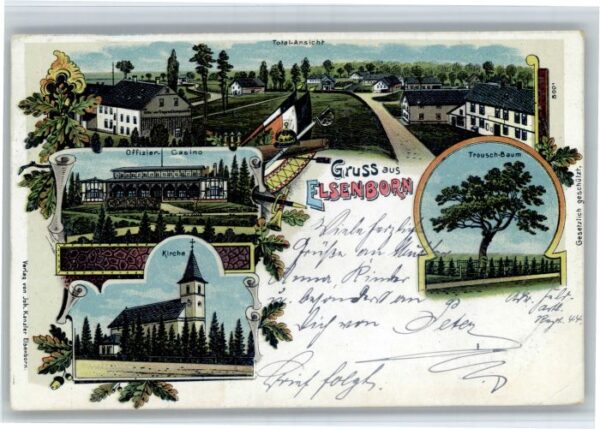 Total-Ansicht
Offizier-Casino
Gruss aus
ELSENBORN
Trousch-Baum
Kirche
Viele herzliche
Grüße an
Anna, Kinder
u. besonders an
Dich von Peter
Brief folgt.
Adr. Feld-
artl.
Regt. 44.
Gesetzlich geschützt.
Verlag von Joh. Kanzler Elsenborn.